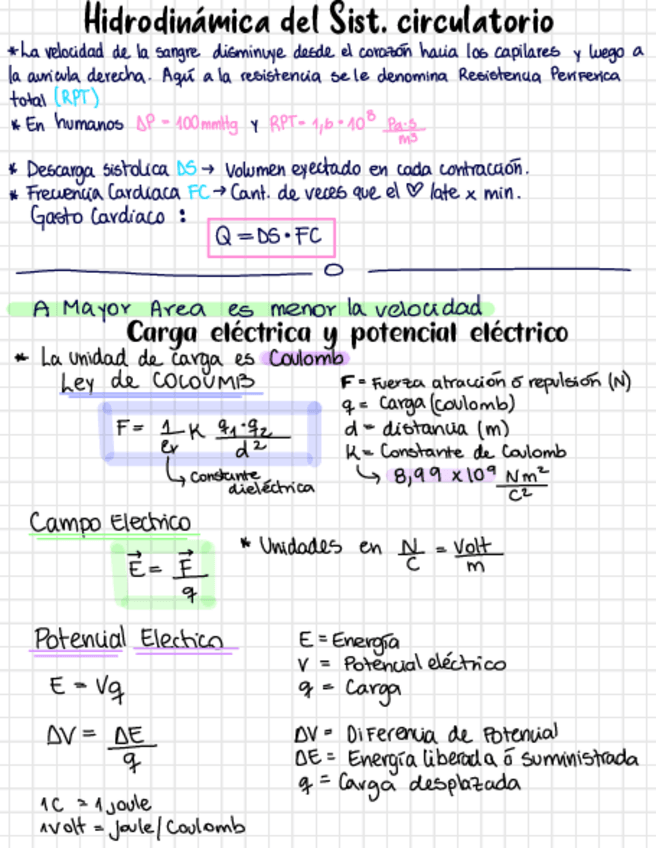 Hidrodinámica del Sist. circulatorio
*La velocidad de la sangre disminuye desde el corazón hacia los capilares y luego a
la auricula derecha. Aquí a la resistencia se le denomina Resistencia Periferica
total (RPT)
* En humanos ΔP = 100mmHg y RPT = 1,6 · 10⁸ Pa·s/m³
* Descarga sistolica DS → Volumen eyectado en cada contracción.
* Frecuencia Cardiaca FC → Cant. de veces que el ♡ late x min.
Gasto Cardiaco :
Q = DS · FC
A Mayor Area es menor la velocidad
Carga eléctrica y potencial eléctrico
* La unidad de carga es Coulomb
Ley de COLOUMB
F = 1/εr K q₁·q₂/d²
↳ Constante
dieléctrica
F = Fuerza atracción ó repulsión (N)
q = Carga (coulomb)
d = distancia (m)
K = Constante de Coulomb
↳ 8,99 x 10⁹ Nm²/C²
Campo Electrico
E⃗ = F⃗/q
* Unidades en N/C = Volt/m
Potencial Electico
E = Vq
ΔV = ΔE/q
1C = 1 joule
1volt = Joule/Coulomb
E = Energía
V = Potencial eléctrico
q = Carga
ΔV = Diferencia de Potencial
ΔE = Energía liberada ó suministrada
q = Carga desplazada